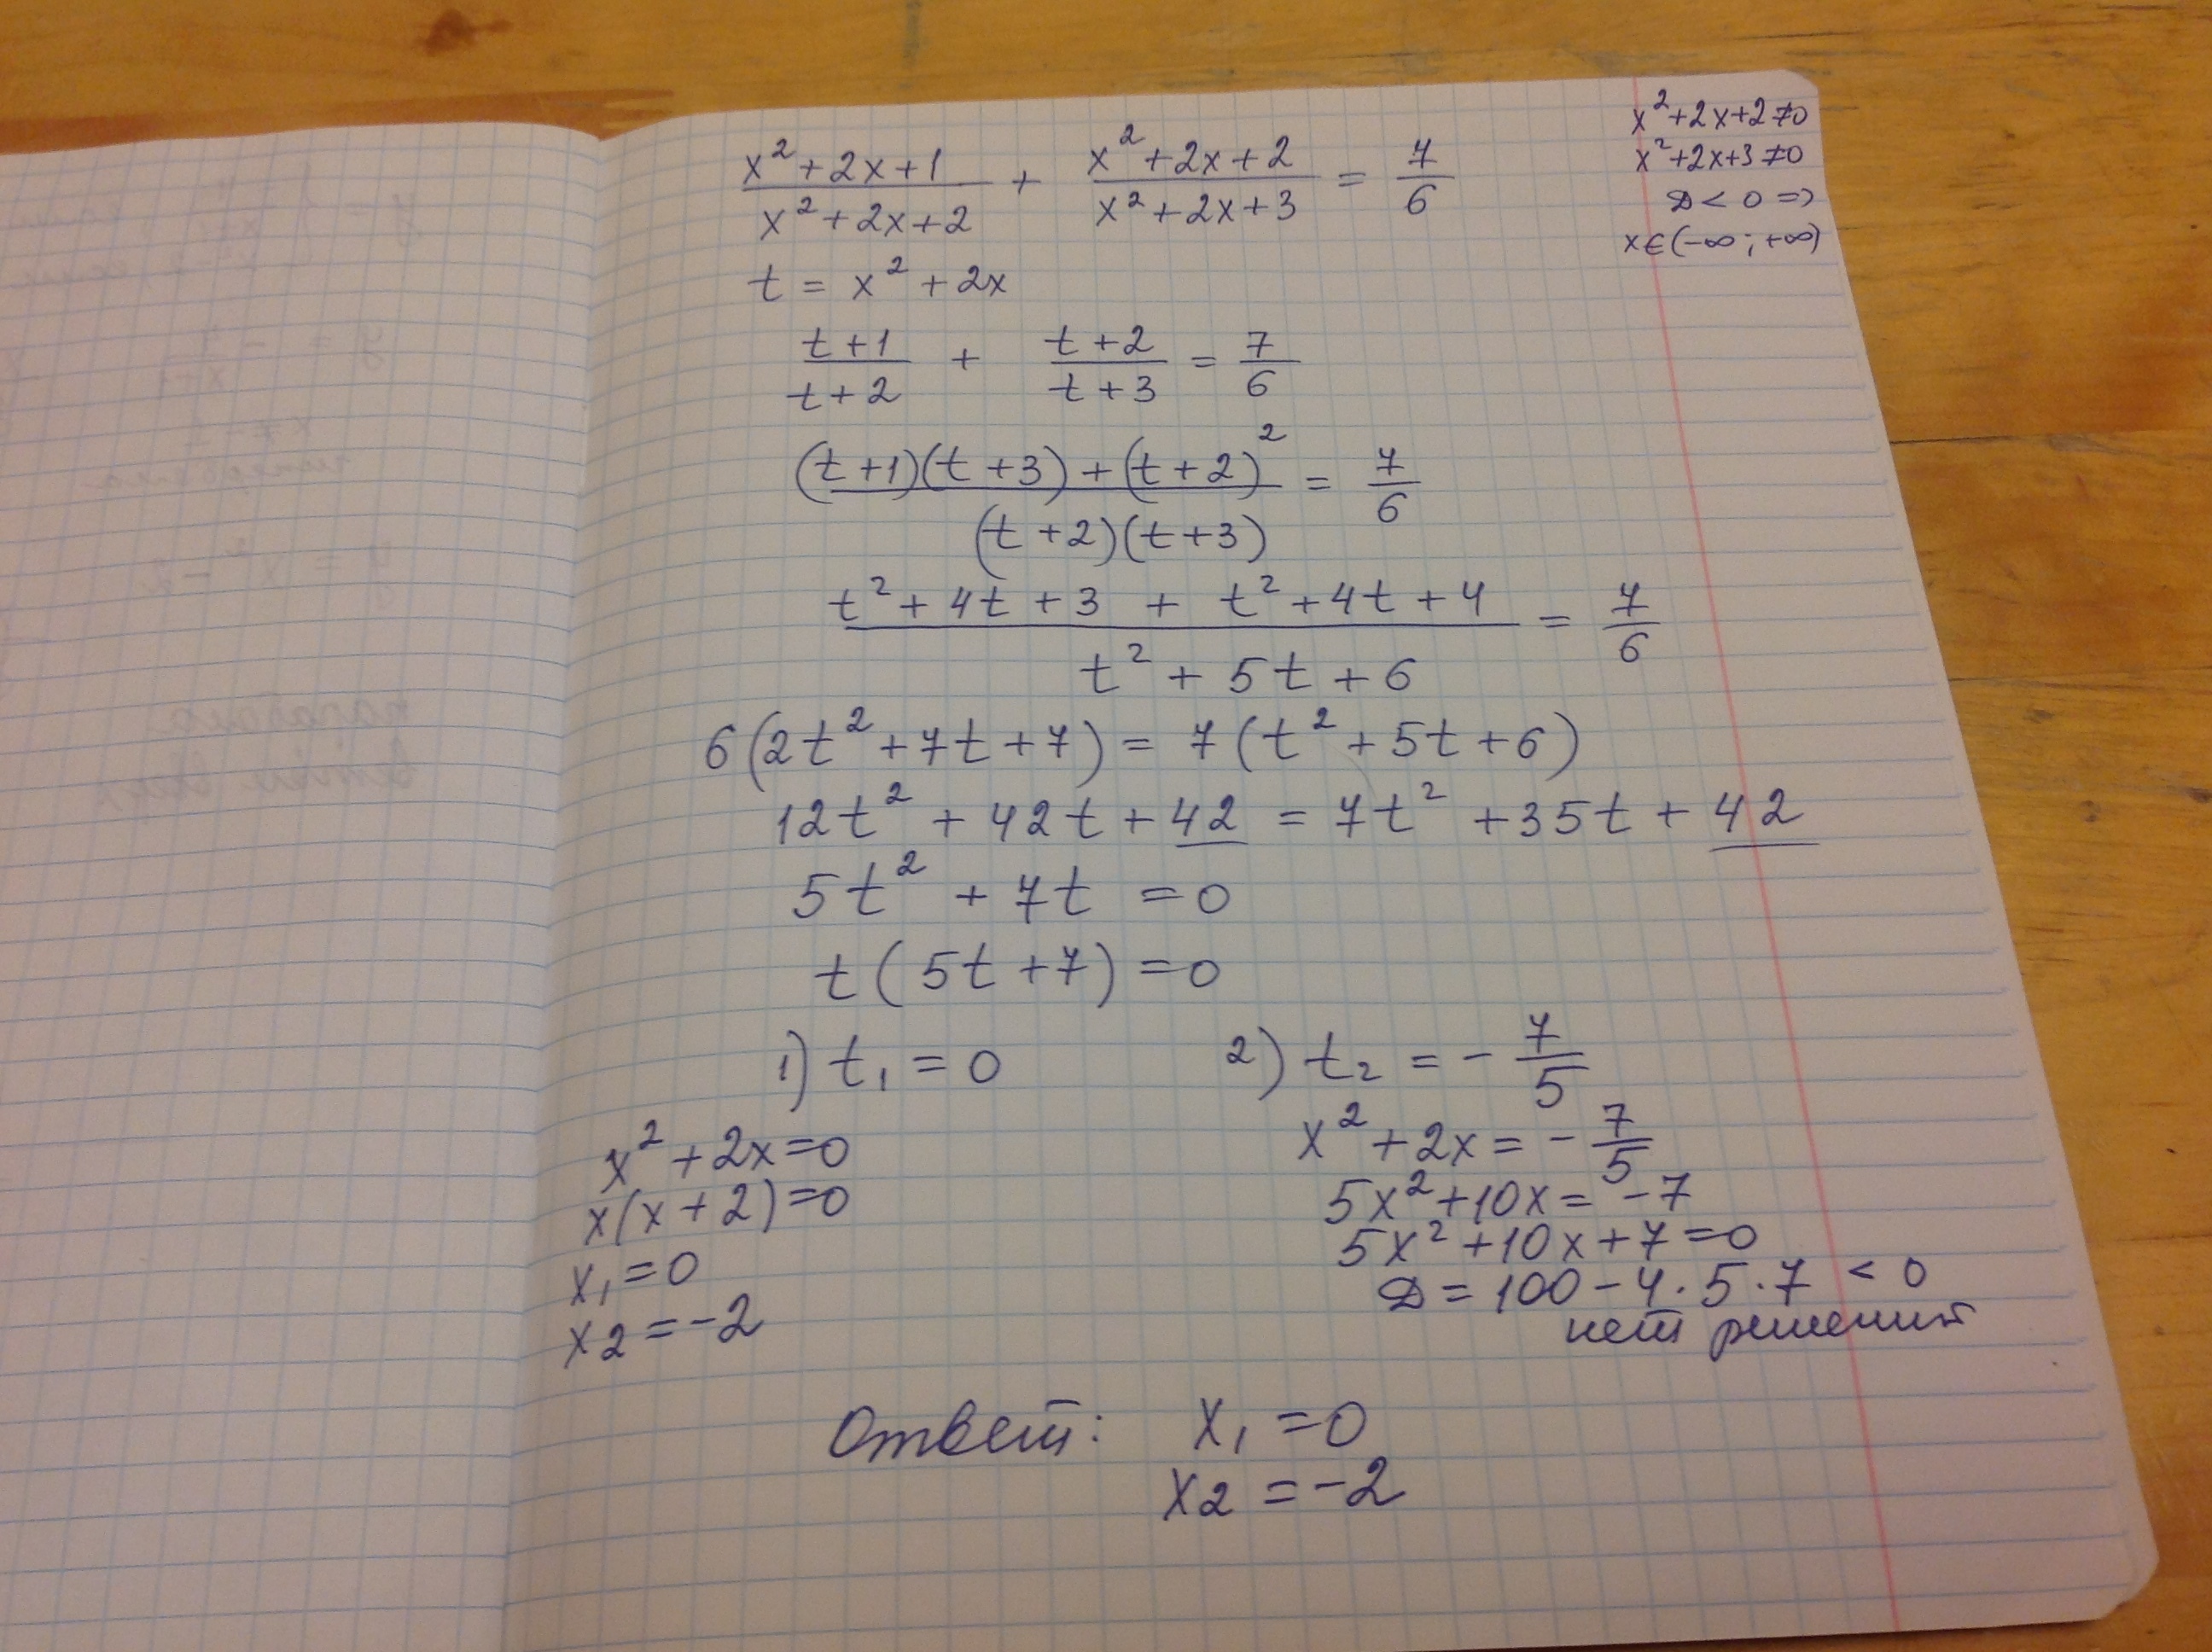 x²+2x+1/x²+2x+2 + x²+2x+2/x²+2x+3 = 7/6
x²+2x+2≠0
x²+2x+3≠0
D < 0 =>
x∈(-∞; +∞)
t = x² + 2x
t+1/t+2 + t+2/t+3 = 7/6
(t+1)(t+3)+(t+2)²/(t+2)(t+3) = 7/6
t²+4t+3 + t²+4t+4/t²+5t+6 = 7/6
6(2t²+7t+7) = 7(t²+5t+6)
12t² + 42t + 42 = 7t² + 35t + 42
5t² + 7t = 0
t(5t+7) = 0
1) t₁ = 0
x²+2x=0
x(x+2)=0
x₁=0
x₂=-2
2) t₂ = -7/5
x²+2x = -7/5
5x²+10x = -7
5x²+10x+7=0
D = 100-4·5·7 < 0
нет решений
Ответ: x₁ = 0
x₂ = -2